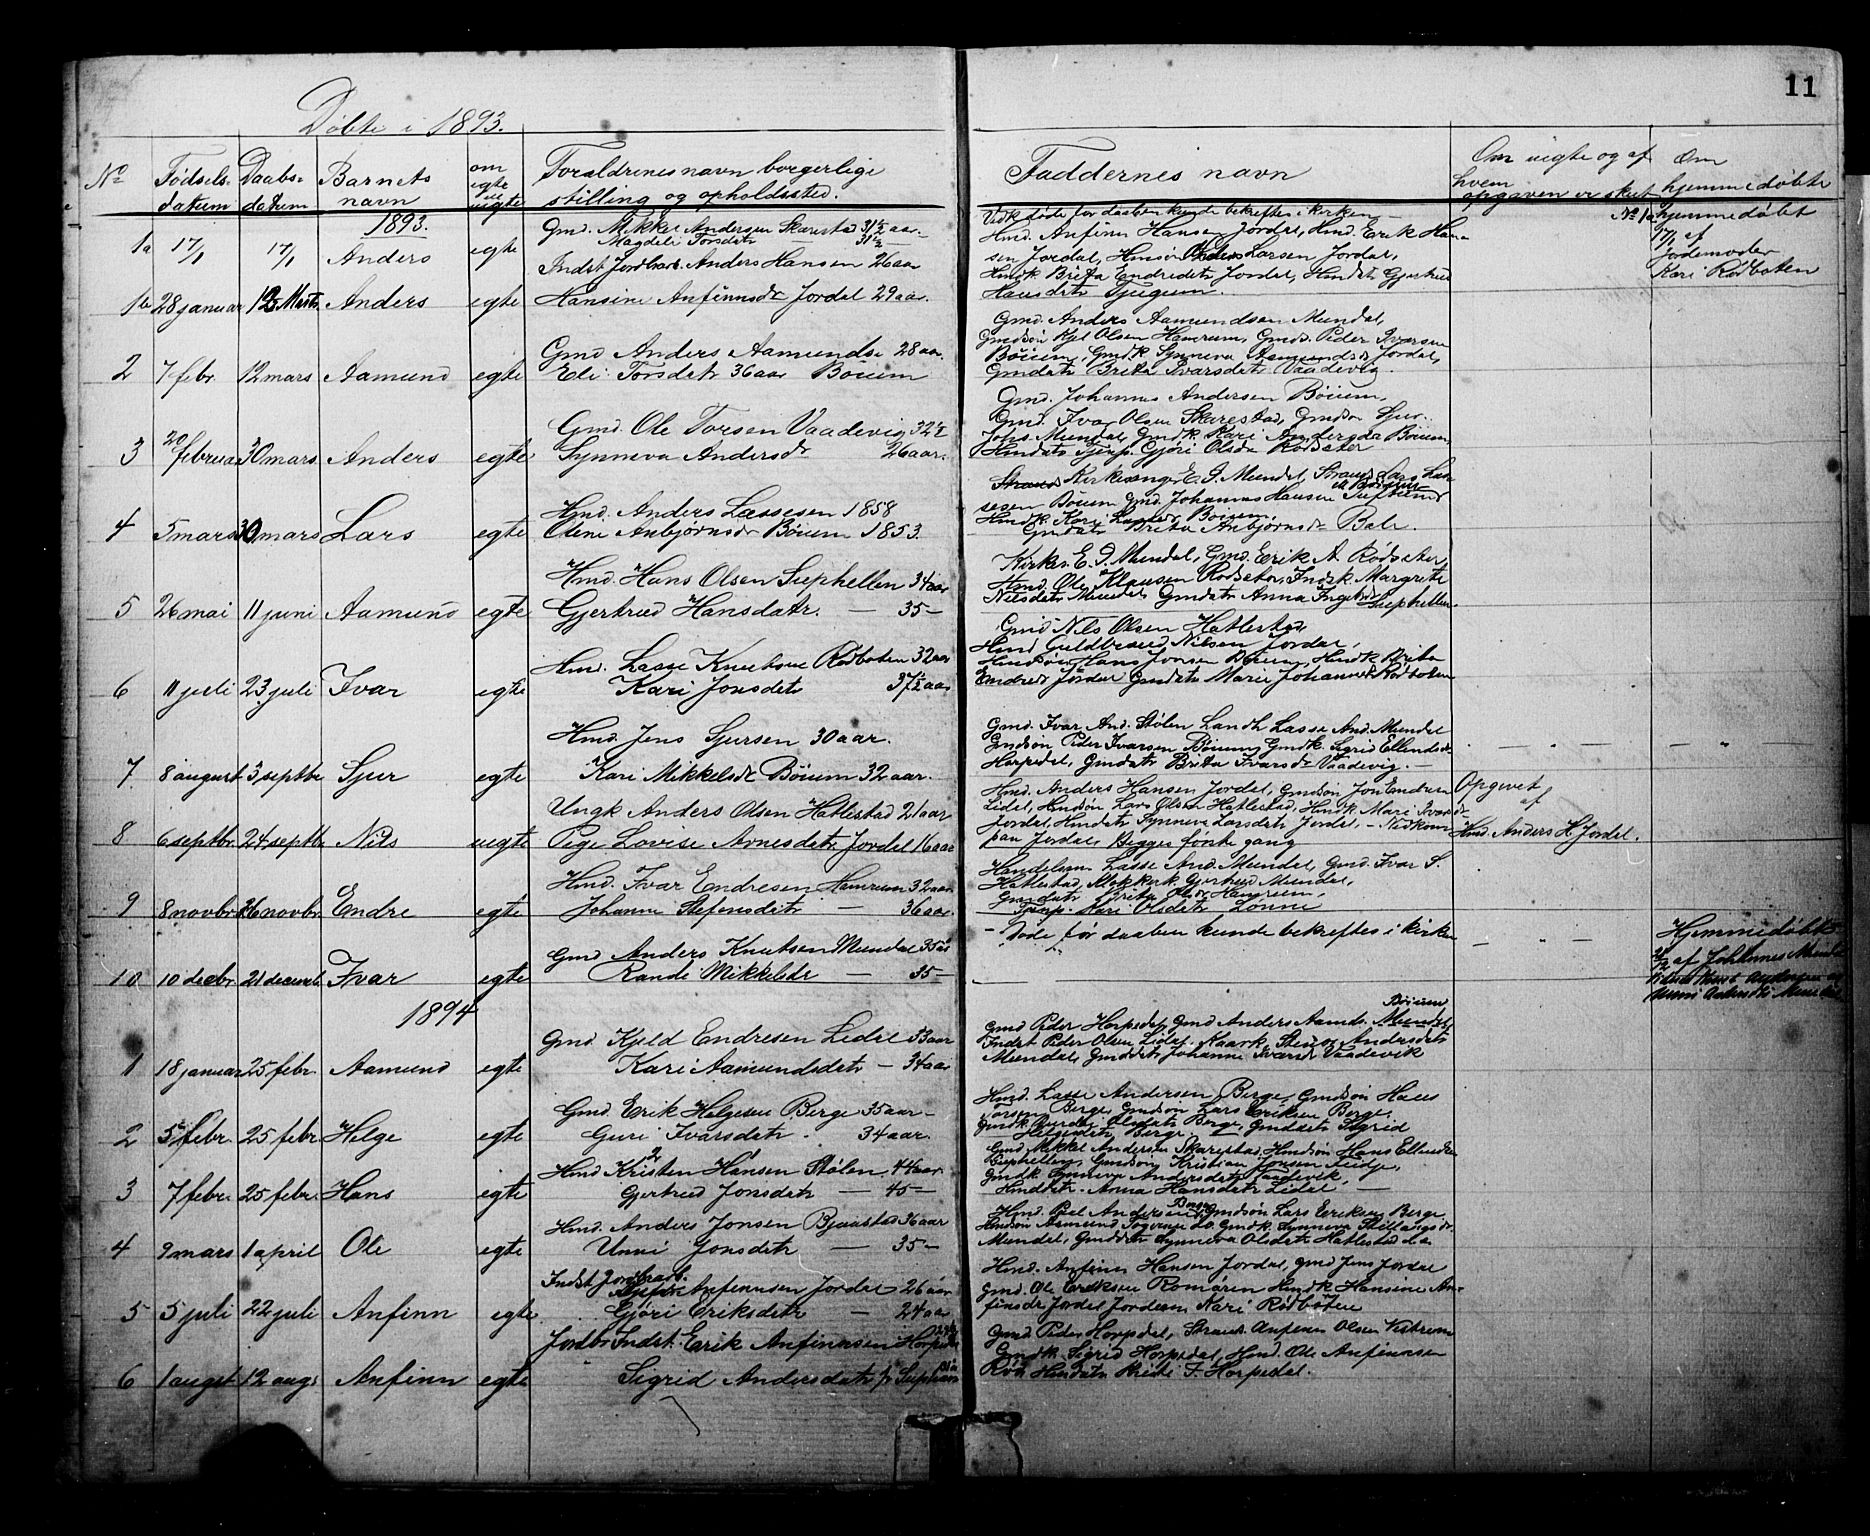 11
Døbte i 1893.
No Fødsels- datum Daabs- datum Barnets navn om egte ell uegte Forældrenes navn borgerlige stilling og opholdssted.
Faddernes navn Om uegte og af hvem opgaven er skeet Om hjemmedøbte
1893.
1a 17/1 17/1 Anders egte Gmd. Mikkel Andersen Skarestad 31½ aar.
Magdeli Torsdatr — 31½ —
døde før daaben kunde bekreftes i kirken —
No 1a hjemmedøbt
17/1 af
Jordemoder
Kari Rødboten
1b 28 januar 12 Marts Anders egte Indst Jordbarb. Anders Hansen 26 aar
Hansine Anfinnsdr Jordal 29 aar.
Hmd. Anfinn Hansen Jordal, Hmd. Erik Han-
sen Jordal, Hmsøn Anders Larsen Jordal,
Hmdk Brita Endredatr Jordal, Hmdatr Gjertrud
Hansdatr Tjugum.
2 7 febr. 12 mars Aamund egte Gmd Anders Aamundse 28 aar.
Eli Torsdatr 36 aar Bøium
Gmd Anders Aamundsen Mundal,
Gmdsøn Kjel Olsen Hamrum, Gmds. Peder Ivarsen
Bøium, Gmdk Synneva Aamundsdr Jordal,
Gmdatr Brita Ivarsdatr Vaadevig.
3 20 februar 30 mars Anders egte Gmd. Ole Torsen Vaadevig 32½
Synneva Andersdr 26 aar.
Gmd. Johannes Andersen Bøium,
Gmd. Ivar Olsen Skarestad, Gmdsøn Sjur
Johs. Mundal, Gmdk. Kari Andersda Bøium,
Hmdatr Tjenp. Gjøri Olsda Rødseter
4 5 mars 30 mars Lars egte Hmd. Anders Lassesen 1858
Oline Anbjørnsdr Bøium 1853.
Kirkesanger E. J. Mundal, Strands. Lars Las-
sesen Bøium Gmd. Johannes Hansen
Hmdk. Kari Bøium,
Gmdatr Brita Anbjørnsdr Bale.
5 26 mai 11 juni Aamund egte Hmd. Hans Olsen Suphellen 34 aar
Gjertrud Hansdatr. — 35 —
Kirkes. E. J. Mundal, Gmd. Erik A. Rødseter,
Hmd. Ole Klausen Rødseter, Indk. Margrete
Nilsdatr Mundal, Gmdatr Anna Suphellen.
6 11 juli 23 juli Ivar egte Hmd. Lasse Rødboten 32 aar
Kari Jonsdatr 37½ aar
Gmd Nils Olsen Hatlestad,
Hmd Guldbrand Nilsen Jordal,
Hmdsøn Hans Jonsen Bøium, Hmdk Brita
Endredr Jordal Gmdatr Marie Johannesdr Rødboten
7 8 august 3 septbr Sjur egte Hmd. Jens Sjursen 30 aar.
Kari Mikkelsdr Bøium 32 aar.
Gmd. Ivar And. Stølen Landh. Lasse And. Mundal
Gmdsøn Peder Ivarsen Bøium, Gmdk. Sigrid Ellendsdr
Horpedal, Gmdatr Brita Ivarsdr Vaadevig. —
8 6 septbr. 24 septbr. Nils uegte Ungk Anders Olsen Hatlestad 21 aar
Pige Lovise Arnesdatr Jordal 16 aar
Hmd. Anders Hansen Jordal, Gmdsøn Jon Endresen
Lidal, Hmdsøn Lars Olsen Hatlestad, Hmdk. Mari Ivarsdr
Jordal, Hmdatr Synneva Larsdatr Jordal. — Nedkom
paa Jordal, Begges første gang
Opgivet
af
Hmd. Anders H. Jordal.
9 8 novbr. 26 novbr. Endre egte Hmd. Ivar Endresen Hamrum 32 aar
Johanne Stefensdatr — 36 aar.
Handelsm. Lasse And. Mundal, Gmd. Ivar S.
Hatlestad, Gjertrud Mundal,
Gmdatr Brita Olsdr Hamrum,
Tjenp. Kari Olsdatr Lønne
10 10 decbr. 21 decemb. Ivar egte Gmd Anders Knutsen Mundal 35 aar
Randi Mikkelsdr — 35 —
— Døde før daaben kunde bekreftes i kirken
Hjemmedøbt
af Johannes Mundal
1894
1 18 januar 25 febr. Aamund egte Gmd. Kjeld Endresen Lidal 33 aar
Kari Aamundsdatr — 34 aar
Bøium
Gmd Peder Horpedal, Gmd Anders Aamds. Mundal,
Indst Peder Olsen Lidal, Andersdatr
Mundal, Gmddatr Johanne Ivarsdr Vaadevik
2 5 febr. 25 febr. Helge egte Gmd. Erik Helgesen Berge 35 aar —
Guri Ivarsdatr. 34 aar.
Hmd. Lasse Andersen Berge, Gmdsøn Hans
Torsen Berge, Gmdsøn Lars Eriksen Berge,
Gmdk Gurda Olsdatr Berge, Gmdatr Sigrid
Helgesdatr Berge.
3 7 febr. 25 febr. Hans egte Hmd Kristen Hansen Stølen 44 aar
Gjertrud Jonsdatr — 45 —
Gmd Mikkel Andersen Skarestad, Hmdsøn Hans Ellendsen
Suphellen, Gmdsøn Kristian Jonsen
Gmdk Synneva Andersdatr Vaadevik,
Hmddatr. Anna Hansdatr Lidal —
4 9 mars 1 april Ole egte Hmd. Anders Jonsen Bjaastad 36 aar
Unni Jonsdatr — 35 —
Hmd. Pål Andersen Berge, Gmdsøn Lars Eriksen Berge
Hmdsøn Aamund do. Gmdk. Synneva
Mundal, Gmddatr Synneva Olsdatr Hatlestad da
5 5 juli 22 juli Anfinn egte Indst Jordbrarb.
Anfinnsen Jordal 26 aar
Gjøri Eriksdatr — 24 aar
Hmd. Anfinn Hansen Jordal, Gmd Jens Jordal
Gmd. Ole Eriksen Romøren Hmdk Hansine An-
finsdr Jordal Jordem. Kari Rødboten
6 1 august 12 augs Anfinn egte Jordbr Indst. Erik Anfinnsen Horpedal
Sigrid Andersdatr
Gmd Peder Horpedal, Strands. Anfinn Olsen Vestrum
Gmdk Sigrid Horpedal, Hmd. Ole Anfinnsen
Hmdatr F. Horpedal.